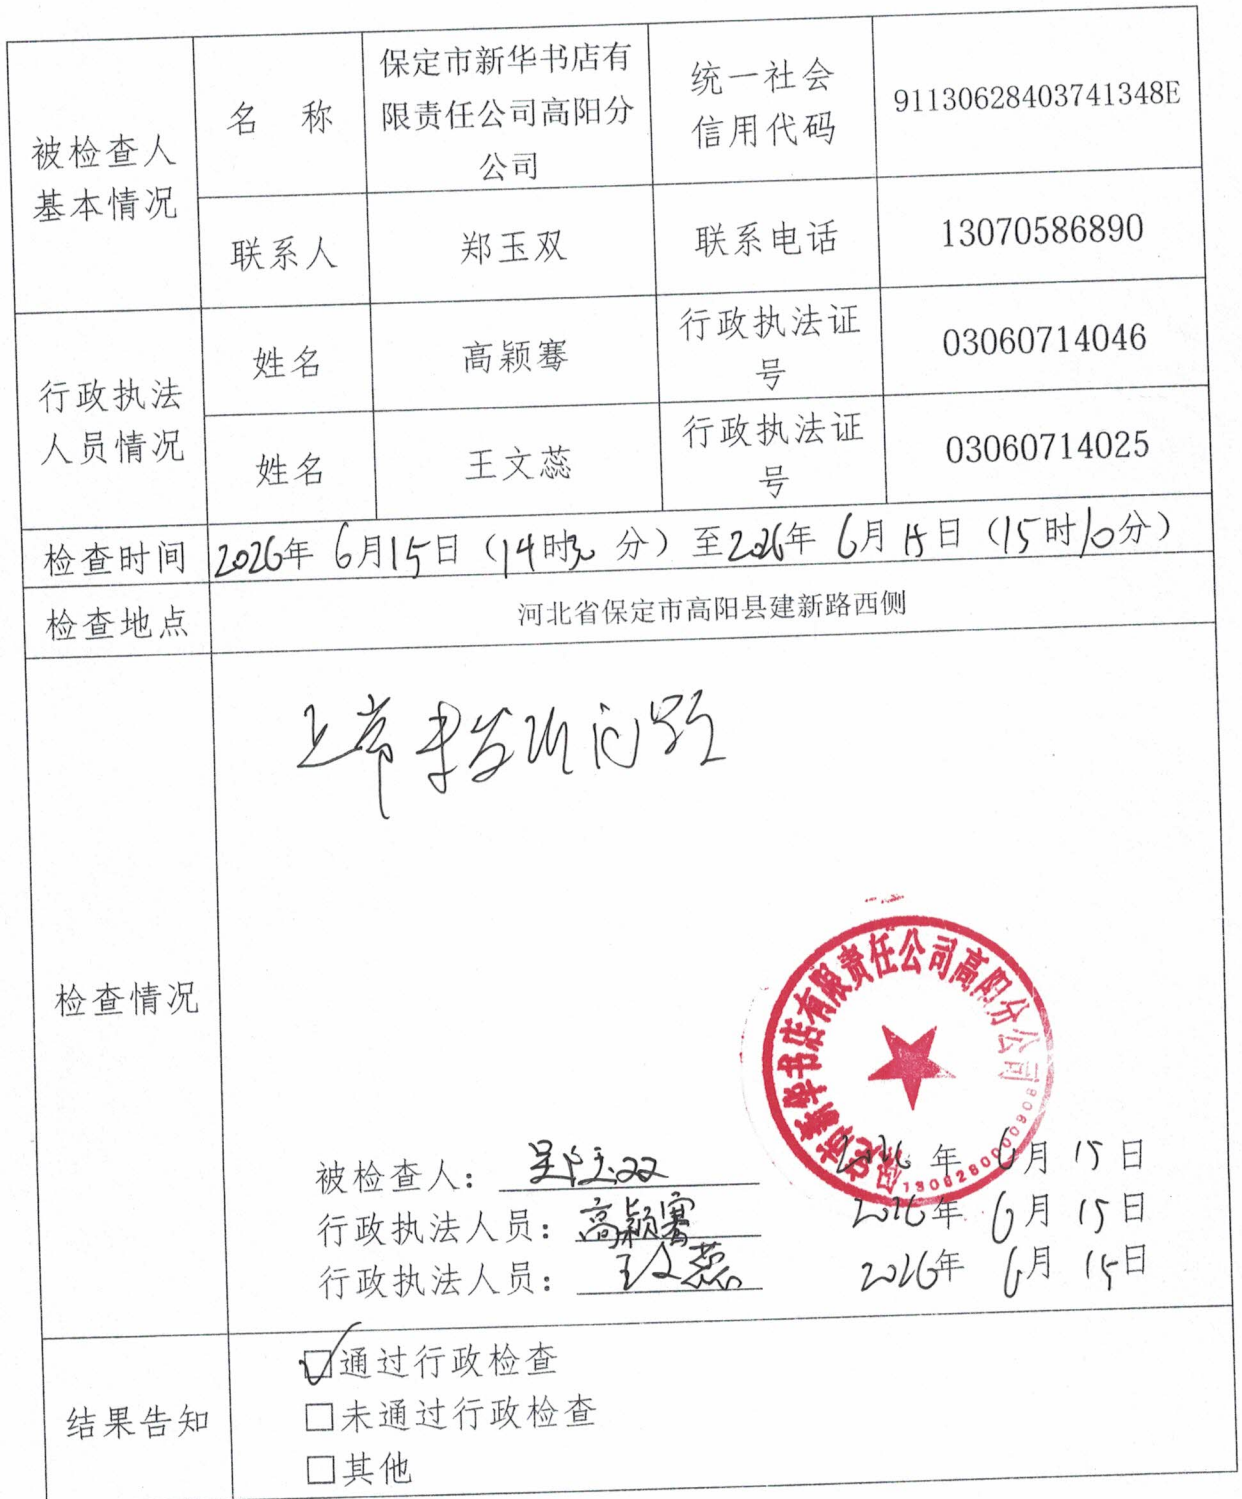 被检查人
基本情况
名 称
保定市新华书店有
限责任公司高阳分
公司
统一社会
信用代码
91130628403741348E
联系人
郑玉双
联系电话
13070586890
行政执法
人员情况
姓名
高颖骞
行政执法证
号
03060714046
姓名
王文蕊
行政执法证
号
03060714025
检查时间
2026年 6月15日（14时30 分）至2026年 6月15日（15时10分）
检查地点
河北省保定市高阳县建新路西侧
检查情况
正常 未发现问题
新华书店有限责任公司高阳分公司
被检查人： 2026年 6月 15日
行政执法人员：高颖骞 2026年 6月 15日
行政执法人员：王文蕊 2026年 6月 15日
结果告知
☑通过行政检查
□未通过行政检查
□其他